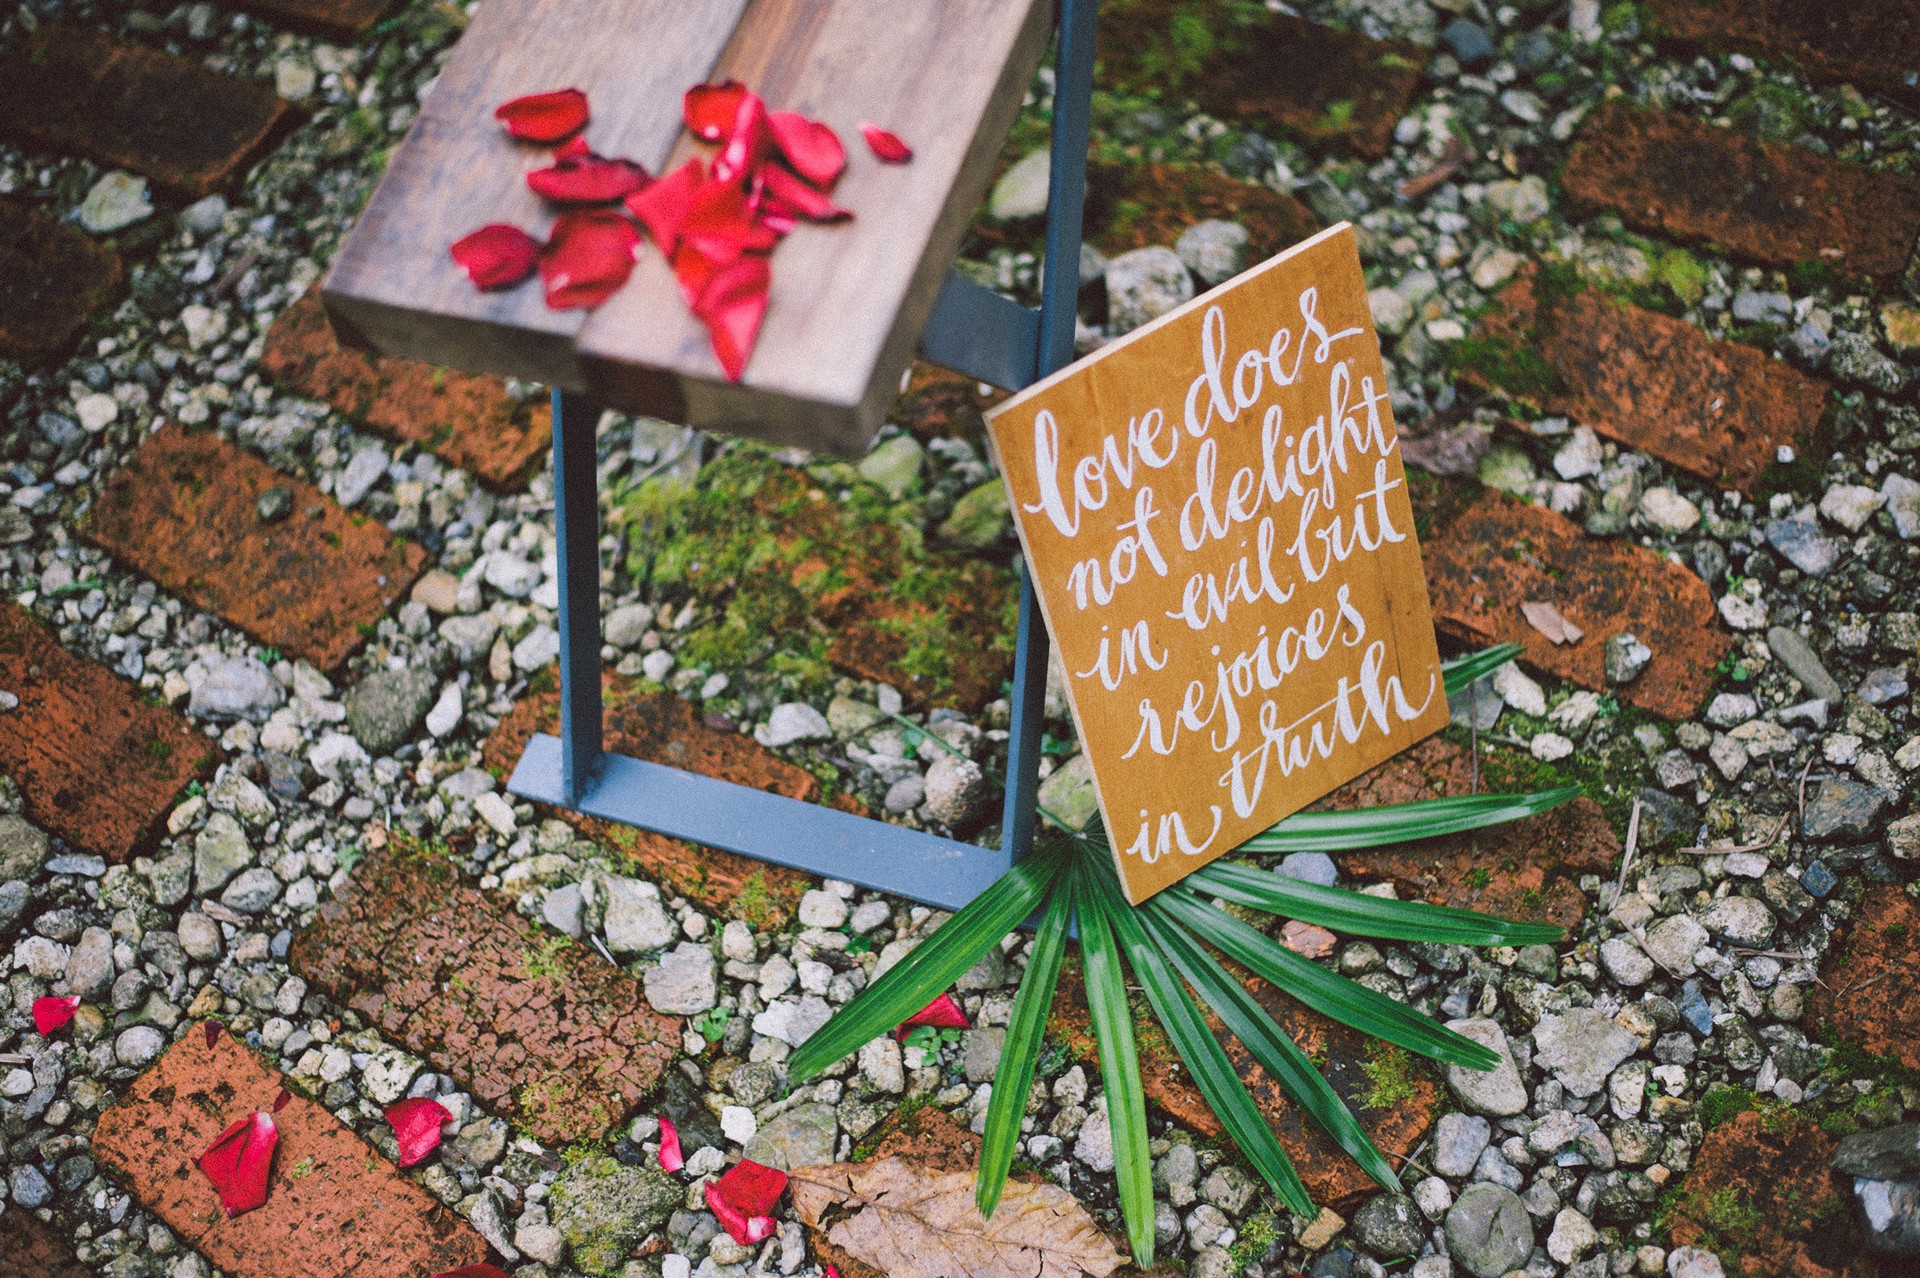 love does
not delight
in evil but
rejoices
in truth